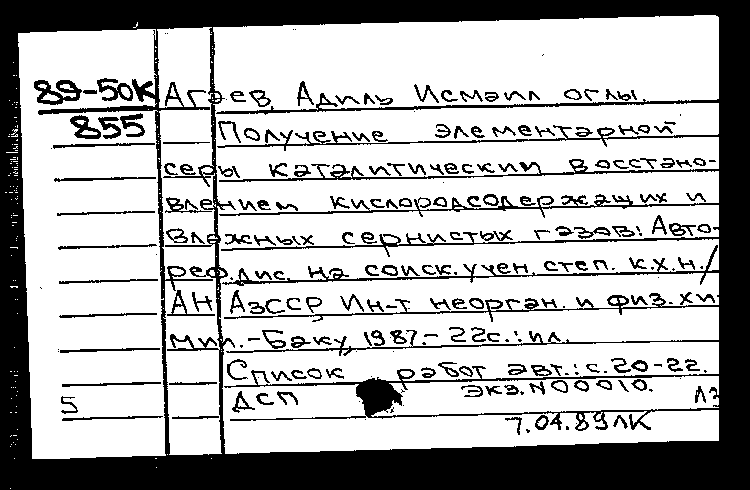 89-50К Агаев, Адиль Исмаил оглы.
855 Получение элементарной
серы каталитическим восстано-
влением кислородсодержащих и
влажных сернистых газов: Авто-
реф. дис. на соиск. учен. степ. к.х.н./
АН АзССР, Ин-т неорган. и физ. хи-
мии.-Баку, 1987.- 22с.: ил.
Список работ авт.: с.20-22.
5 ДСП Экз. N00010.
7.04.89ЛК